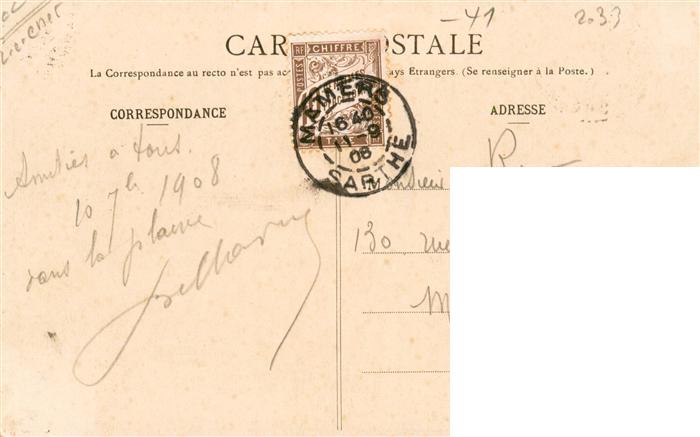 -41 2033
CARTE POSTALE
La Correspondance au recto n'est pas acc ays Etrangers. (Se renseigner à la Poste.)
CORRESPONDANCE
ADRESSE
RF CHIFFRE
POSTES
MAMERS
16 40
11 -9
08
SARTHE
Amitiés à tous.
10 7bre 1908
dans la plaine
Monsieur
130 rue
M